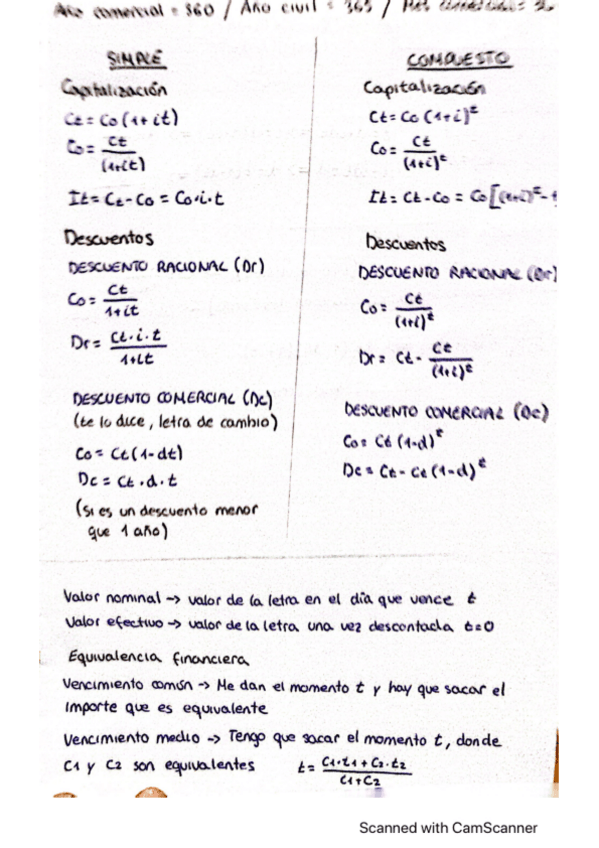 Año comercial = 360 / Año civil = 365 /
SIMPLE
Capitalización
Ct = Co (1+it)
Co = Ct / (1+it)
It = Ct - Co = Co·i·t
Descuentos
DESCUENTO RACIONAL (Dr)
Co = Ct / 1+it
Dr = Ct·i·t / 1+it
DESCUENTO COMERCIAL (Dc)
(te lo dice, letra de cambio)
Co = Ct (1-dt)
Dc = Ct · d · t
(si es un descuento menor
que 1 año)
COMPUESTO
Capitalización
Ct = Co (1+i)^t
Co = Ct / (1+i)^t
It = Ct - Co = Co [(1+i)^t -
Descuentos
DESCUENTO RACIONAL (Dr)
Co = Ct / (1+i)^t
Dr = Ct - Ct / (1+i)^t
DESCUENTO COMERCIAL (Dc)
Co = Ct (1-d)^t
Dc = Ct - Ct (1-d)^t
Valor nominal -> valor de la letra en el día que vence t
Valor efectivo -> valor de la letra una vez descontada t=0
Equivalencia financiera
Vencimiento común -> Me dan el momento t y hay que sacar el
importe que es equivalente
Vencimiento medio -> Tengo que sacar el momento t, donde
C1 y C2 son equivalentes t = C1·t1 + C2·t2 / C1+C2
Scanned with CamScanner